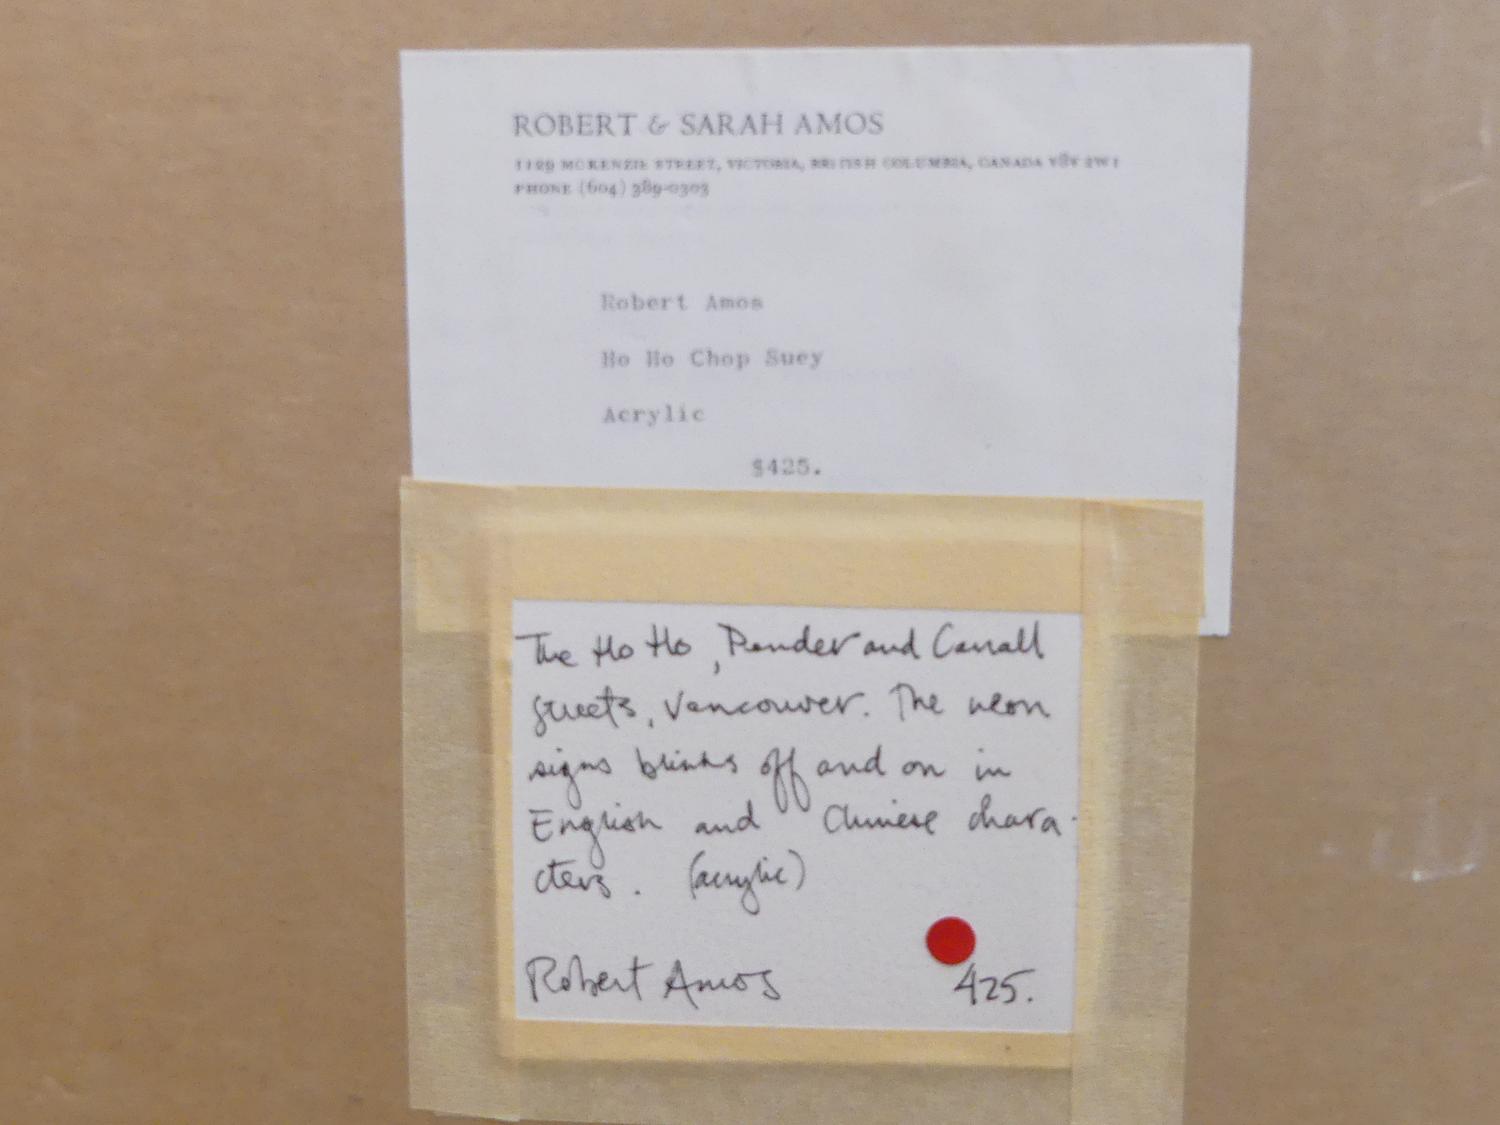 ROBERT & SARAH AMOS
1129 MCKENZIE STREET, VICTORIA, BRITISH COLUMBIA, CANADA V8V 2W1
PHONE (604) 389-0303
Robert Amos
Ho Ho Chop Suey
Acrylic
$425.
The Ho Ho, Pender and Carrall
streets, Vancouver. The neon
signs blinks off and on in
English and Chinese chara-
cters. (acrylic)
Robert Amos 425.